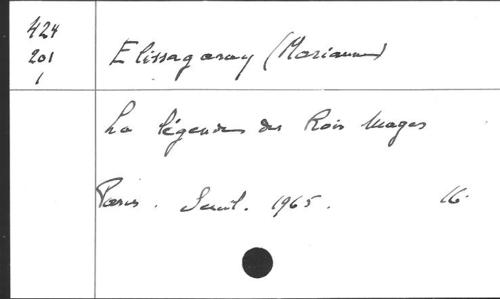 424
201
1
Elissagaray (Marianne)
La légende des Rois Mages
Paris. Seuil. 1965. 16.